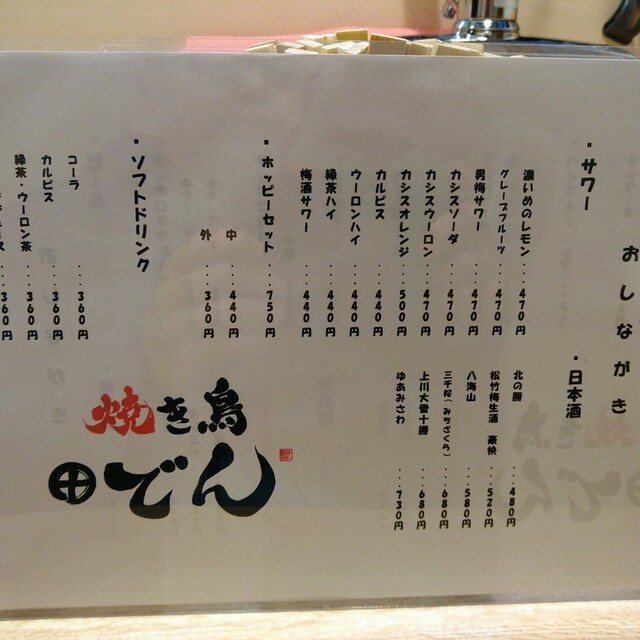 おしながき
・サワー
濃いめのレモン...470円
グレープフルーツ...470円
男梅サワー...470円
カシスソーダ...470円
カシスウーロン...470円
カシスオレンジ...500円
カルピス...440円
ウーロンハイ...440円
緑茶ハイ...440円
梅酒サワー...440円
・ホッピーセット...750円
中...440円
外...360円
・ソフトドリンク
コーラ...360円
カルピス...360円
緑茶・ウーロン茶...360円
...360円
・日本酒
北の勝...480円
松竹梅生酒 豪快...520円
八海山...580円
三千桜(みちざくら)...680円
上川大雪十勝...680円
ゆあみさわ...730円
焼き鳥
でん